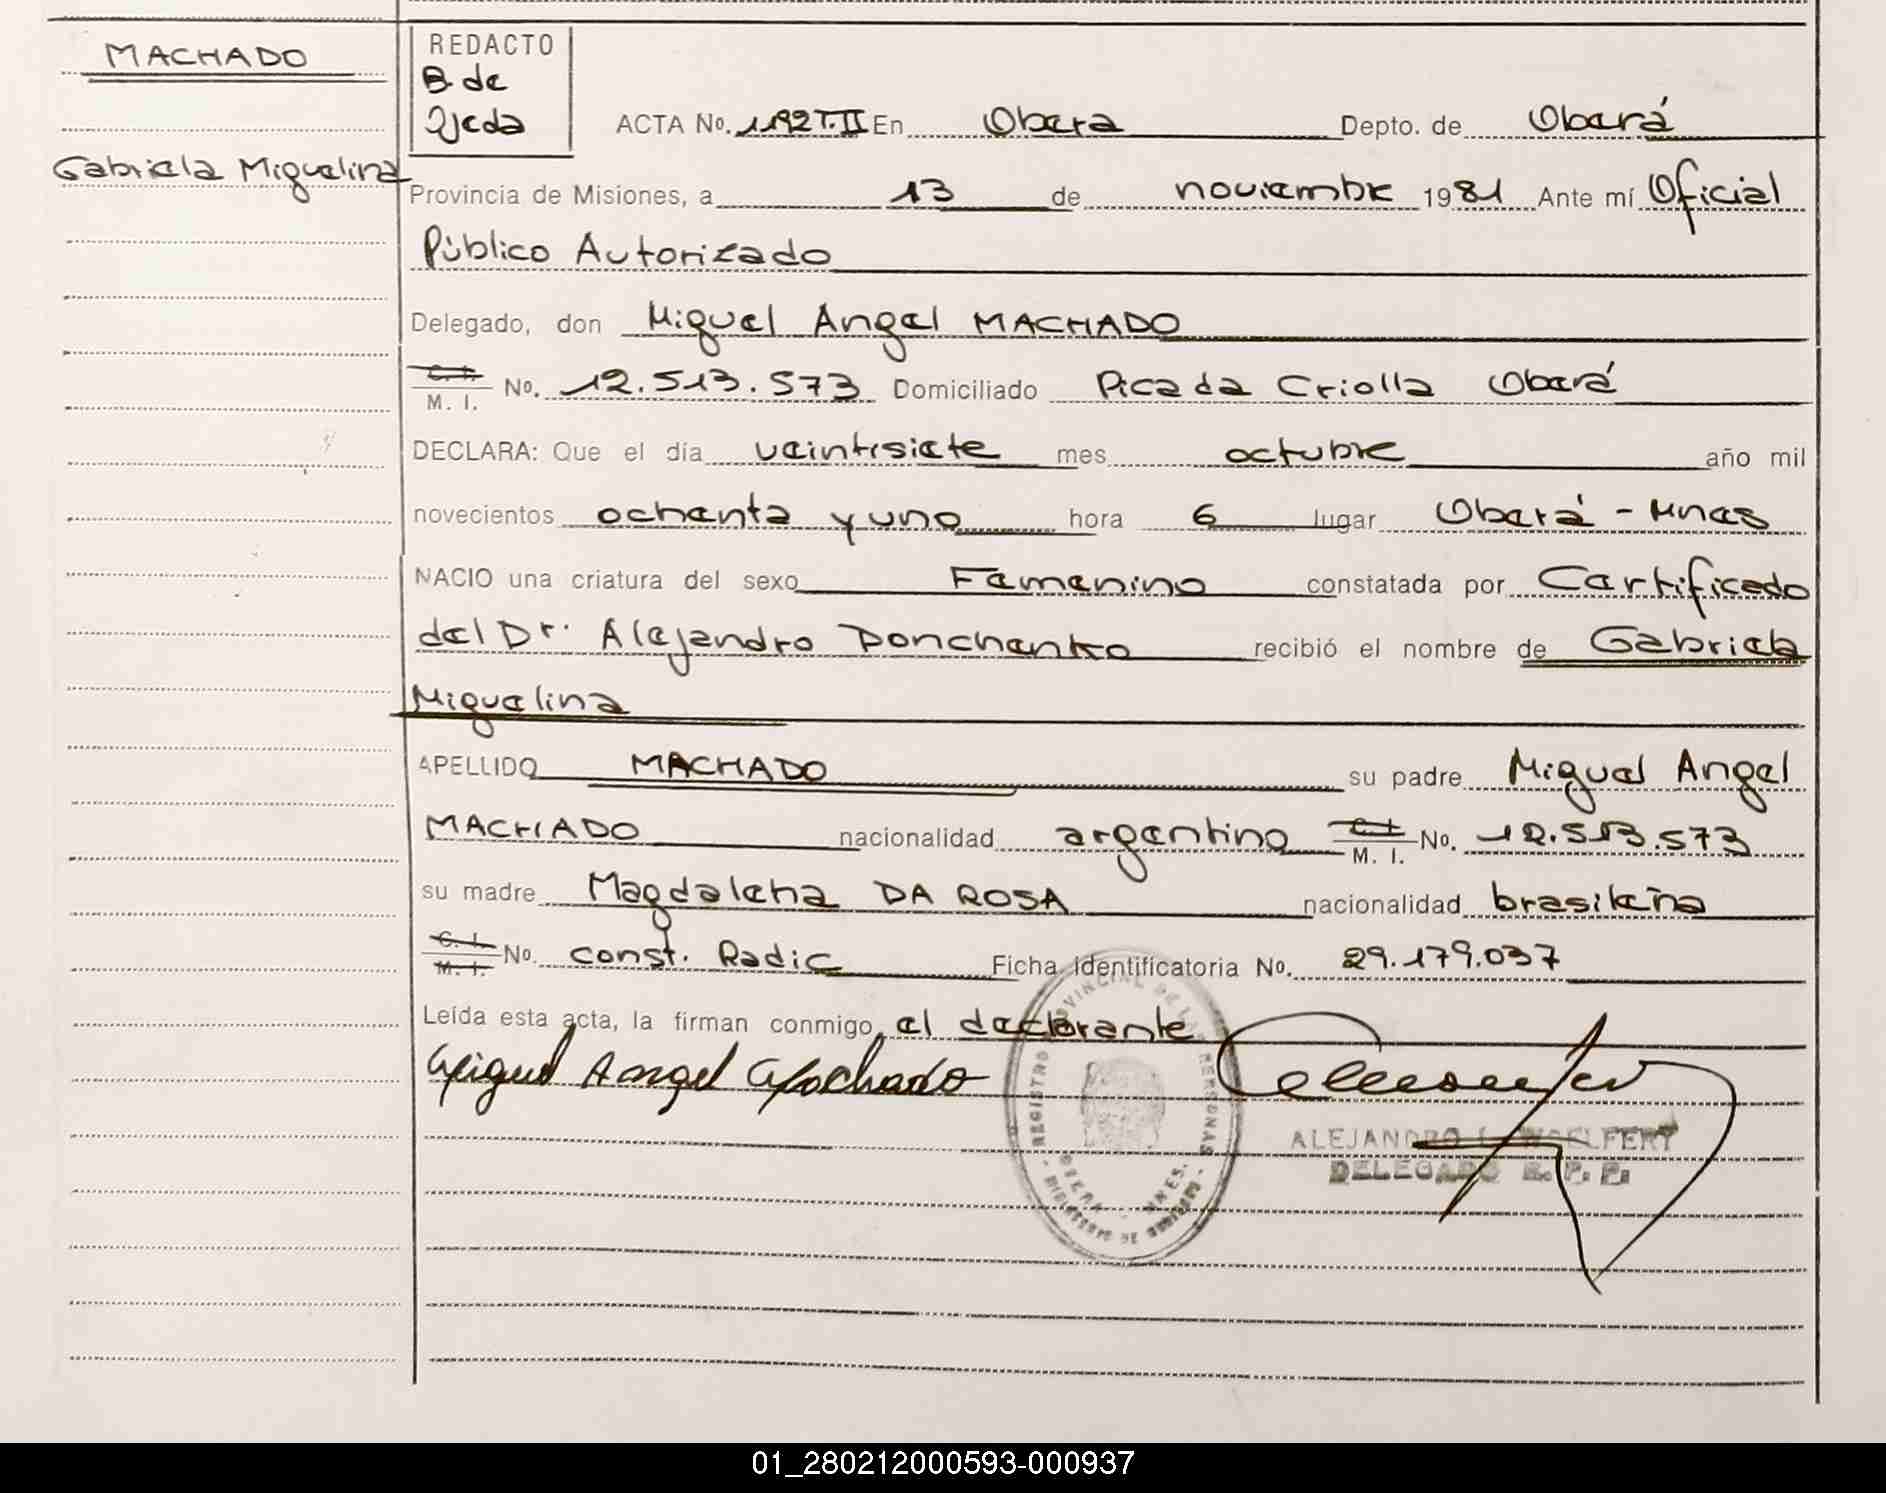 MACHADO
Gabriela Miguelina
REDACTO
B. de
Ojeda
ACTA No. 1192 T.II En Obera Depto. de Oberá
Provincia de Misiones, a 13 de noviembre 1981 Ante mí Oficial
Público Autorizado
Delegado, don Miguel Angel MACHADO
C. I. M. I. No. 12.513.573 Domiciliado Picada Criolla Oberá
DECLARA: Que el día veintisiete mes octubre año mil
novecientos ochenta y uno hora 6 lugar Oberá - Mnes
NACIO una criatura del sexo Femenino constatada por Certificado
del Dr. Alejandro Donchenko recibió el nombre de Gabriela
Miguelina
APELLIDO MACHADO su padre Miguel Angel
MACHADO nacionalidad argentino C. I. M. I. No. 12.513.573
su madre Magdalena DA ROSA nacionalidad brasileña
C. I. M. I. No. const. Radic Ficha Identificatoria No. 29.179.037
Leída esta acta, la firman conmigo, el declarante
Miguel Angel Machado
REGISTRO PROVINCIAL DE LAS PERSONAS
OBERA - MNES.
MINISTERIO DE GOBIERNO
ALEJANDRO WOELFERT
DELEGADO R. P. P.
01_280212000593-000937